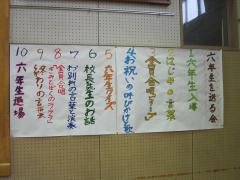 六年生を送る会
1 六年生入場
2 はじめの言葉
3 全員合唱
4 お祝いの呼びかけ歌
5 六年生クイズ
6 校長先生のお話
7 お別れの言葉と演奏
8 全員合唱
9 終わりの言葉
10 六年生退場